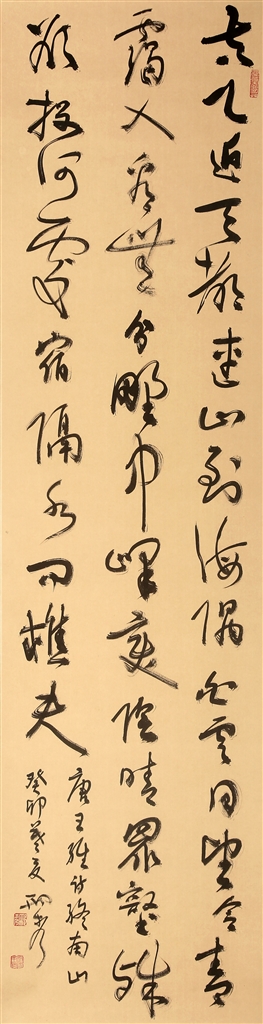 太乙近天都連山到海隅白雲回望合青
靄入看無分野中峰變陰晴衆壑殊
欲投何處宿隔水問樵夫
唐王維詩終南山
癸卯夏